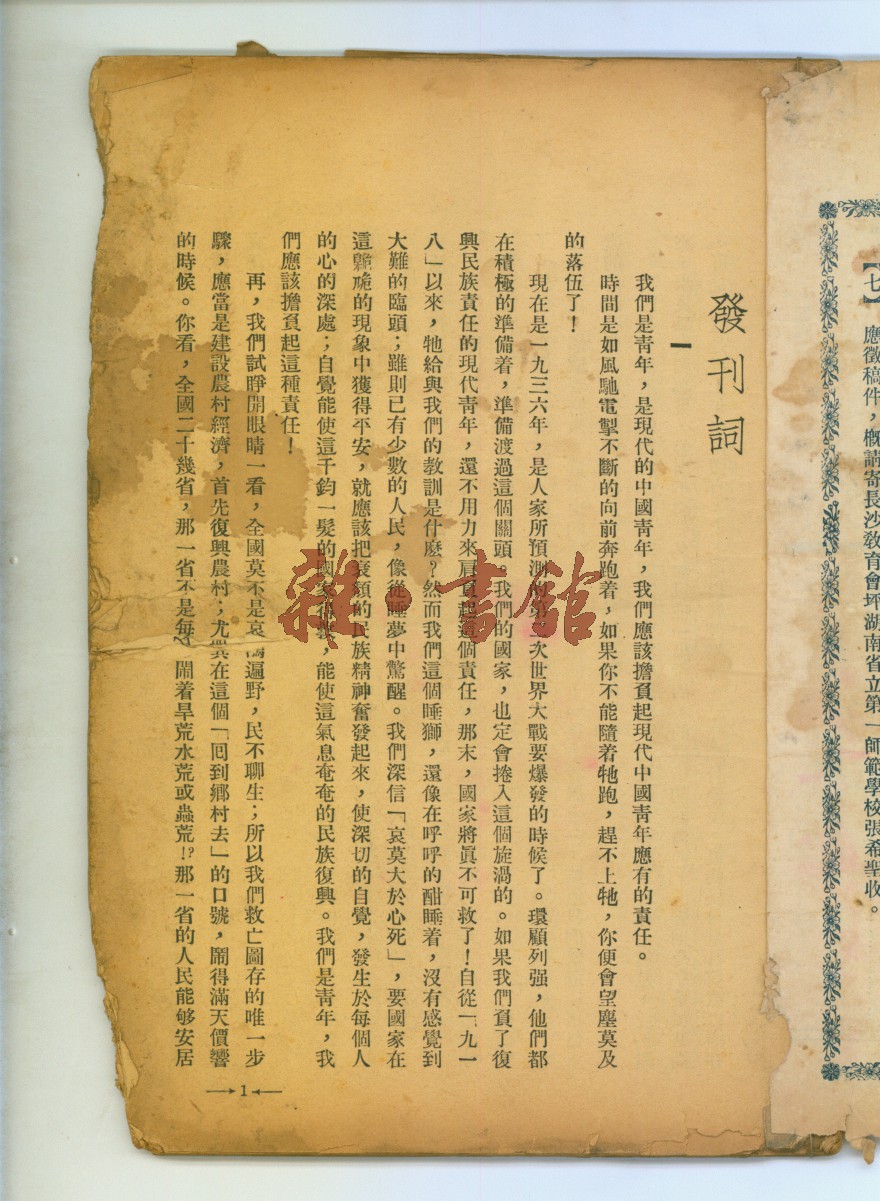 【七】 應徵稿件，概請寄長沙敎育會坪湖南省立第一師範學校張希聖收。
發刊詞
一
我們是靑年，是現代的中國靑年，我們應該擔負起現代中國靑年應有的責任。
時間是如風馳電掣不斷的向前奔跑着，如果你不能隨着牠跑，趕不上牠，你便會望塵莫及
的落伍了！
現在是一九三六年，是人家所預測的第二次世界大戰要爆發的時候了。環顧列强，他們都
在積極的準備着，準備渡過這個關頭。我們的國家，也定會捲入這個旋渦的。如果我們負了復
興民族責任的現代靑年，還不用力來肩負起這個責任，那末，國家將眞不可救了！自從「九一
八」以來，牠給與我們的敎訓是什麽？然而我們這個睡獅，還像在呼呼的酣睡着，沒有感覺到
大難的臨頭；雖則已有少數的人民，像從睡夢中驚醒。我們深信「哀莫大於心死」，要國家在
這臲卼的現象中獲得平安，就應該把衰頹的民族精神奮發起來，使深切的自覺，發生於每個人
的心的深處；自覺能使這千鈞一髮的國家得救，能使這氣息奄奄的民族復興。我們是靑年，我
們應該擔負起這種責任！
再，我們試睜開眼睛一看，全國莫不是哀鴻遍野，民不聊生；所以我們救亡圖存的唯一步
驟，應當是建設農村經濟，首先復興農村；尤其在這個「囘到鄕村去」的口號，鬧得滿天價響
的時候。你看，全國二十幾省，那一省不是每 鬧着旱荒水荒或蟲荒！？那一省的人民能够安居
1
雜·書館